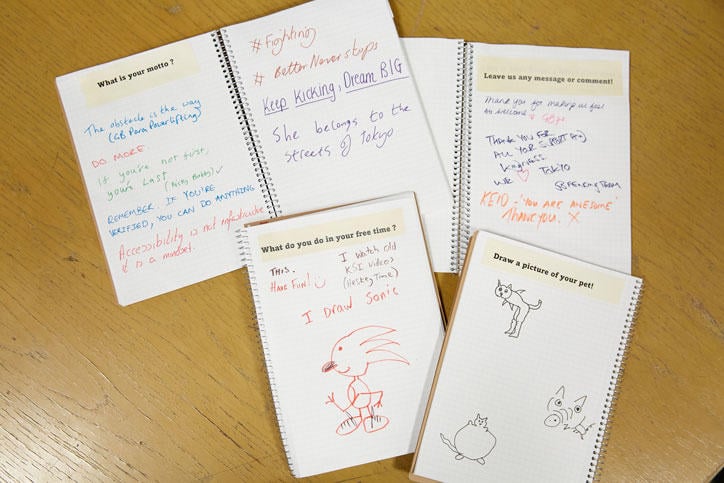 What is your motto ?
The obstacle is the way
(GB Para Powerlifting)
DO MORE.
If you're not first,
yours Last (Nicky Butty)
REMEMBER. IF YOU'RE
VERIFIED, YOU CAN DO ANYTHING
Accessibility is not infrastructure
it is a mindset.
#Fighting
# BetterNeverStops
Keep Kicking, Dream BIG
She belongs to the
streets of Tokyo
Leave us any message or comment!
Thank you for making us feel
so welcome
THANK YOU FOR
ALL YOUR SUPPORT AND
KINDNESS
WE TOKYO
GB FENCING TEAM
KEIO - 'YOU ARE AWESOME'
THANK YOU. X
What do you do in your free time ?
THIS.
HAVE FUN!
I WATCH OLD
KSI VIDEOS
(Heskey Time)
I DRAW Sonic
Draw a picture of your pet!